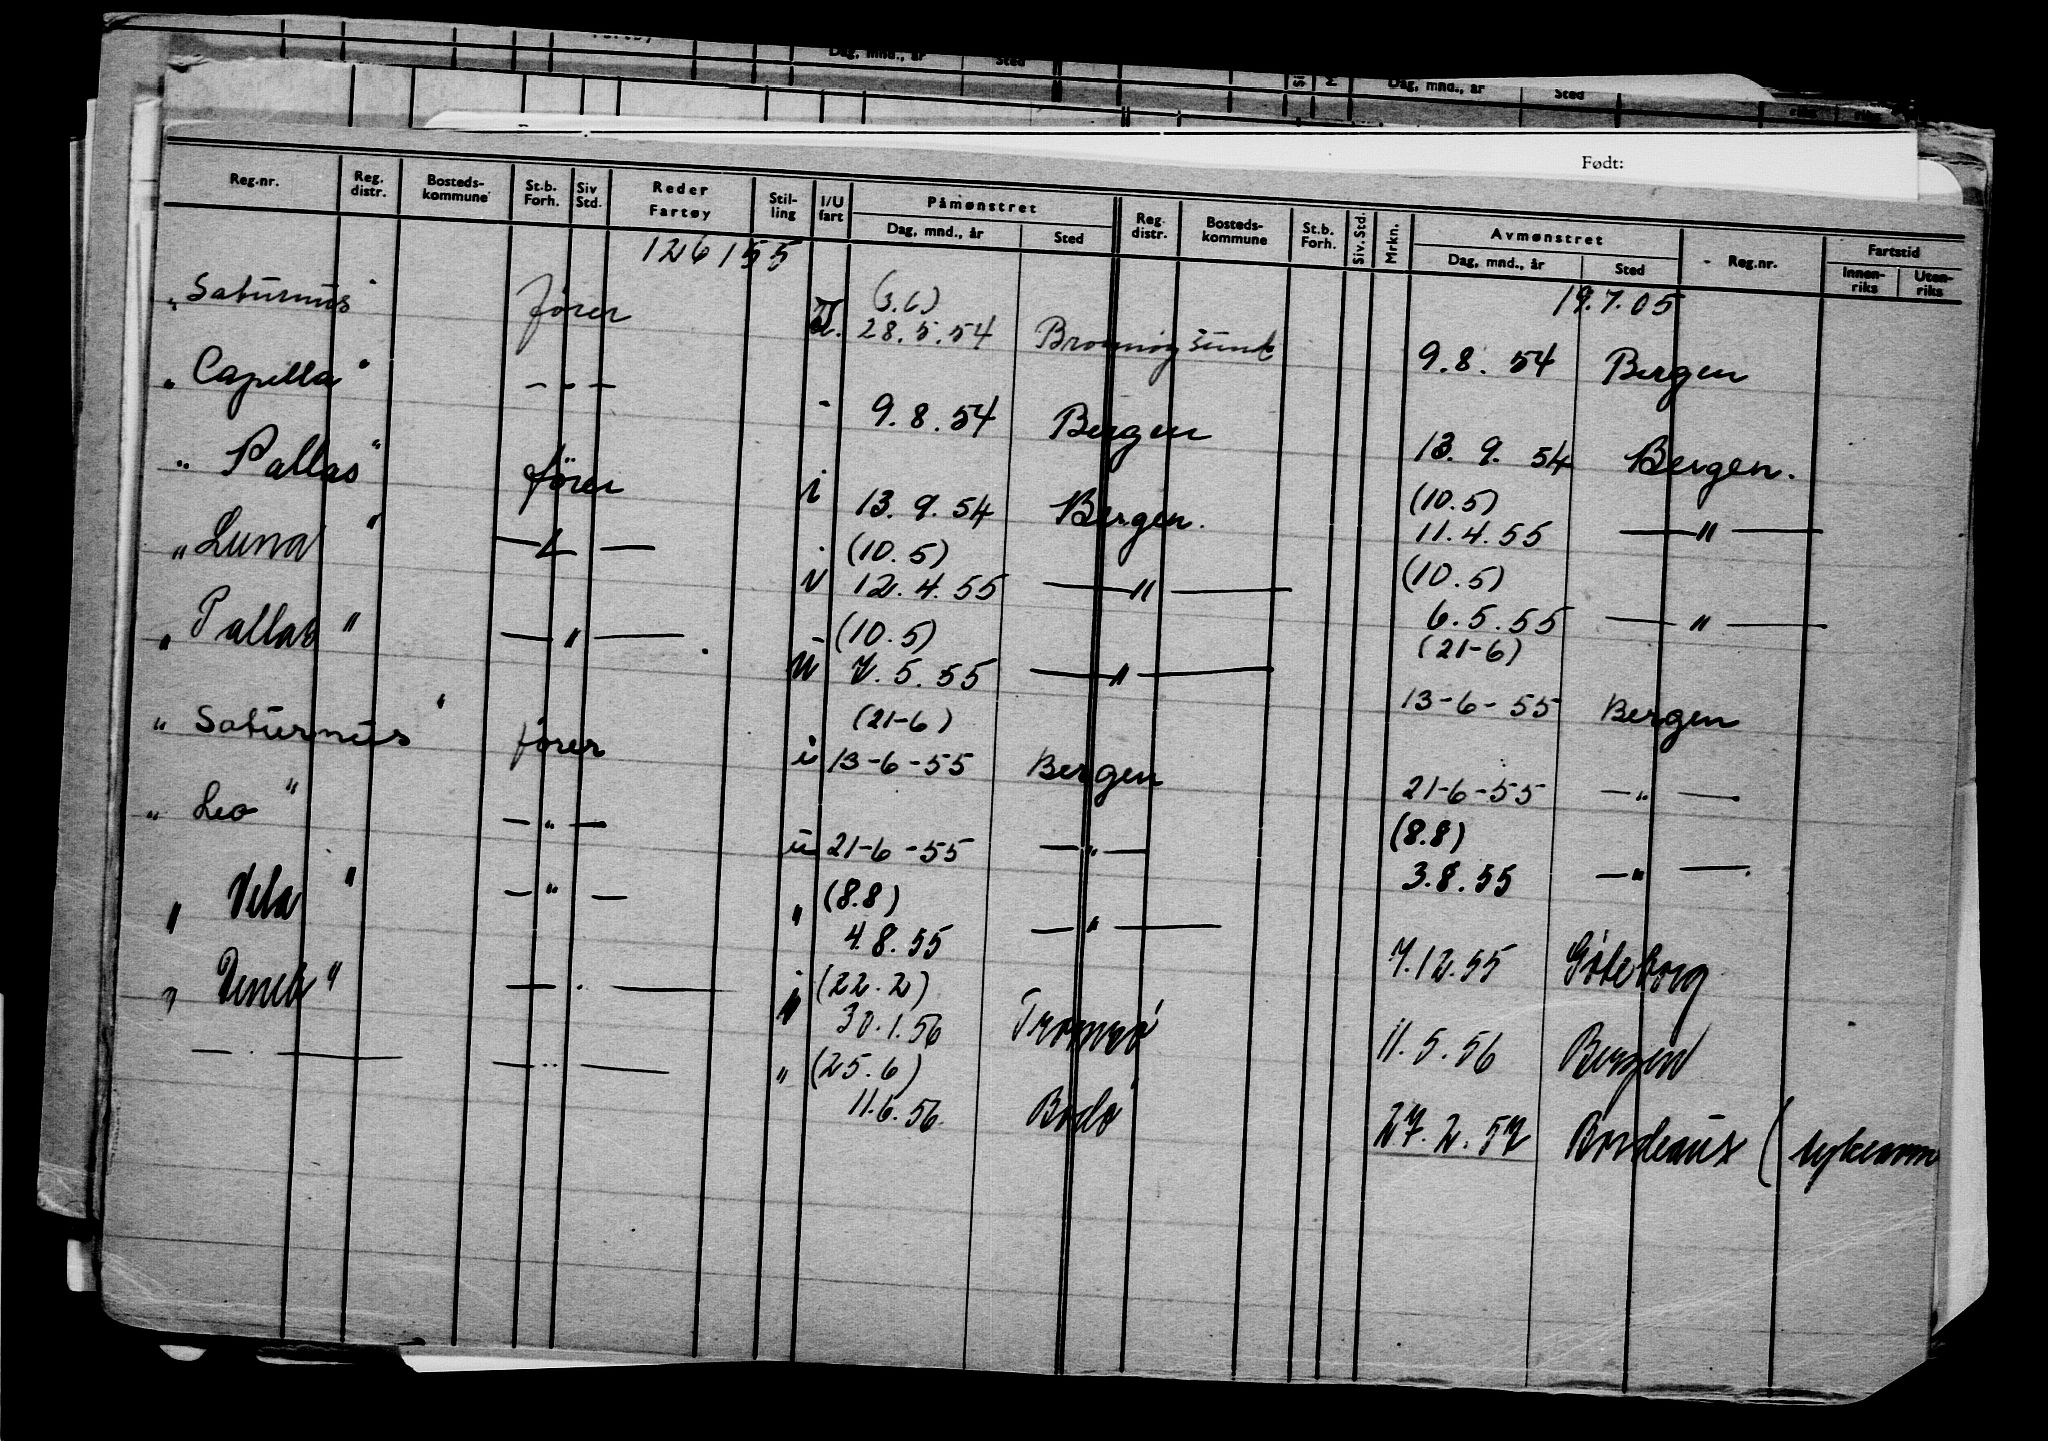 Dag, mnd., år Sted Dag, mnd., år Sted
Født:
Reg.nr. Reg. distr. Bosteds-kommune St.b. Forh. Siv Std. Reder Fartøy Stil-ling I/U fart Påmønstret Dag, mnd., år Sted Reg. distr. Bosteds-kommune St.b. Forh. Siv. Std. Mrkn. Avmønstret Dag, mnd., år Sted Reg.nr. Fartstid Innen-riks Uten-riks
126155 19.7.05
(3.6)
"Saturnus" fører U. 28.5.54 Brønnøysund 9.8.54 Bergen
"Capella" -"- - 9.8.54 Bergen 13.9.54 Bergen.
(10.5)
"Pallas" fører i 13.9.54 Bergen. 11.4.55 -"-
(10.5) (10.5)
"Luna" -"- 12.4.55 -"- 6.5.55 -"-
(10.5) (21-6)
"Pallas" -"- 7.5.55 -"- 13-6-55 Bergen
(21-6)
"Saturnus" fører i 13-6-55 Bergen 21-6-55 -"-
(8.8)
"Leo" -"- u 21-6-55 -"- 3.8.55 -"-
(8.8)
"Vela" -"- " 4.8.55 -"- 7.12.55 Göteborg
(22.2)
"Venus" -"- 30.1.56 Tromsø 11.5.56 Bergen
(25.6)
-"- -"- " 11.6.56 Bodø 27.2.57 Bordeaux (